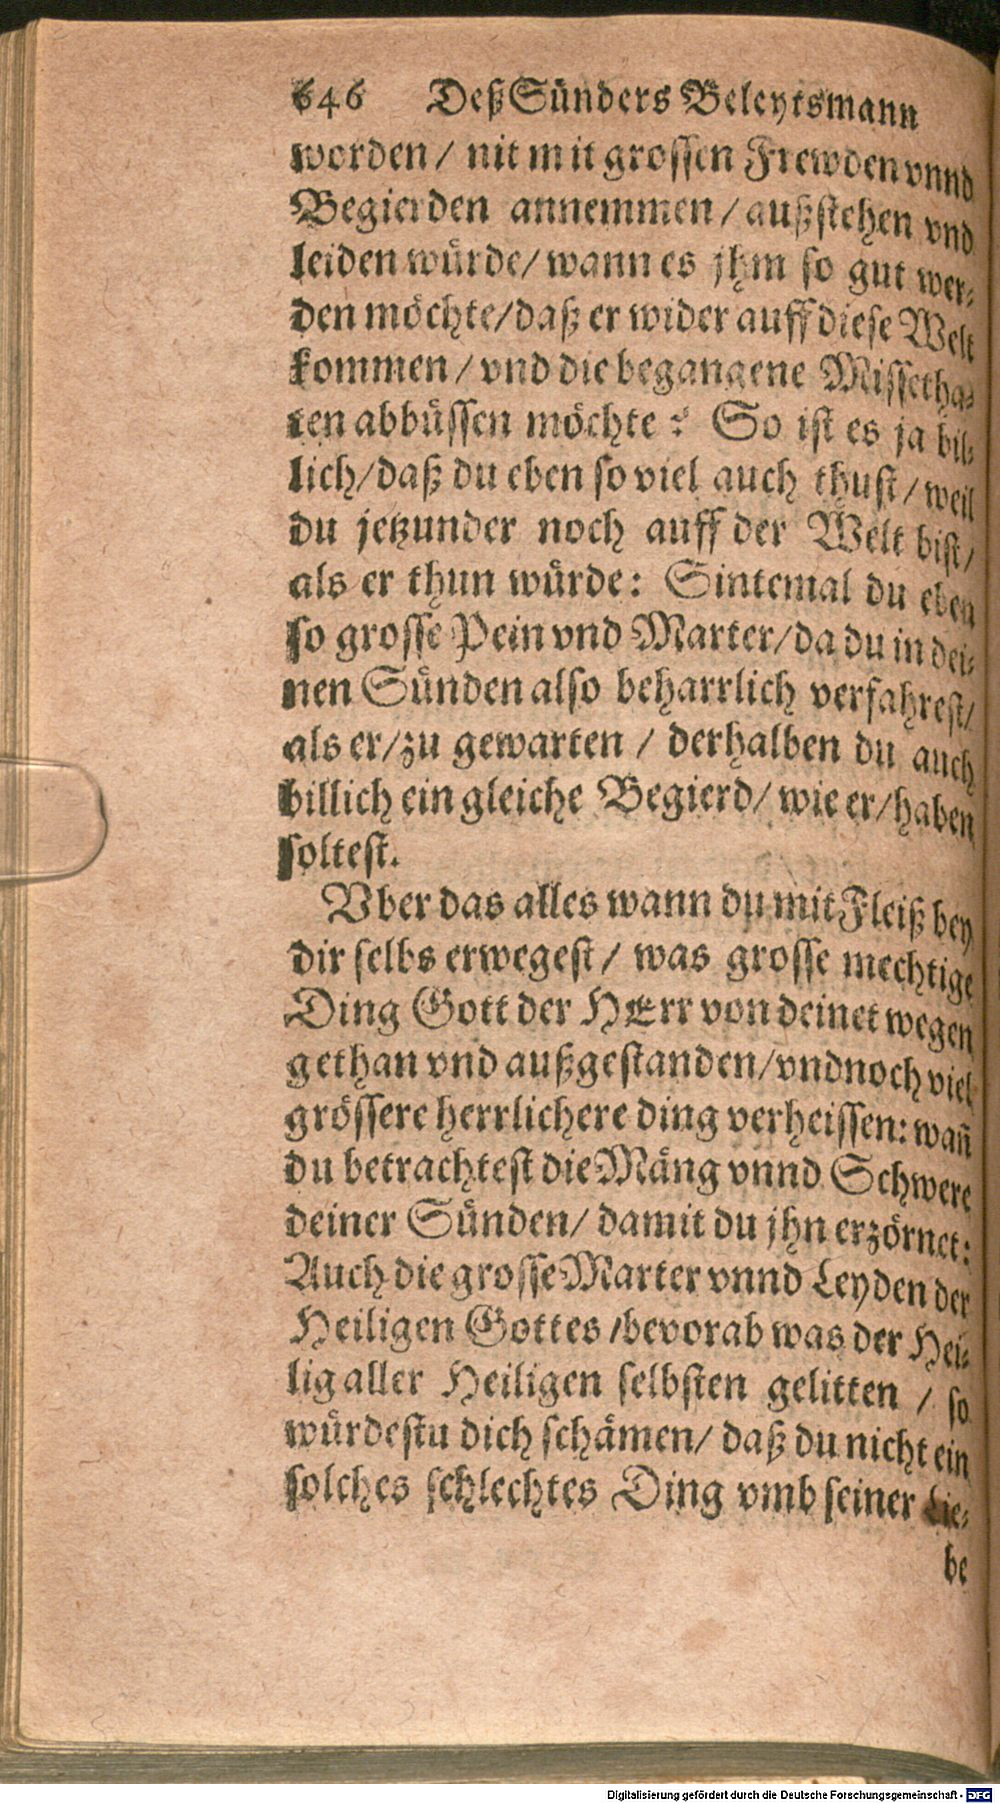 646 Deß Sünders Beleytsmann
worden / nit mit grossen Frewden vnnd
Begierden annemmen / außstehen vnd
leiden würde / wann es jhm so gut wer-
den möchte / daß er wider auff diese Welt
kommen / vnd die begangene Missetha-
ten abbüssen möchte ? So ist es ja bil-
lich / daß du eben so viel auch thust / weil
du jetzunder noch auff der Welt bist /
als er thun würde: Sintemal du eben
so grosse Pein vnd Marter / da du in dei-
nen Sünden also beharrlich verfahrest /
als er / zu gewarten / derhalben du auch
billich ein gleiche Begierd / wie er / haben
soltest.
Vber das alles wann du mit Fleiß bey
dir selbs erwegest / was grosse mechtige
Ding Gott der HErr von deinet wegen
gethan vnd außgestanden / vnd noch viel
grössere herrlichere ding verheissen: wañ
du betrachtest die Mäng vnnd Schwere
deiner Sünden / damit du jhn erzörnet:
Auch die grosse Marter vnnd Leyden der
Heiligen Gottes / bevorab was der Hei-
lig aller Heiligen selbsten gelitten / so
würdestu dich schämen / daß du nicht ein
solches schlechtes Ding vmb seiner Lie-
be
Digitalisierung gefördert durch die Deutsche Forschungsgemeinschaft - DFG